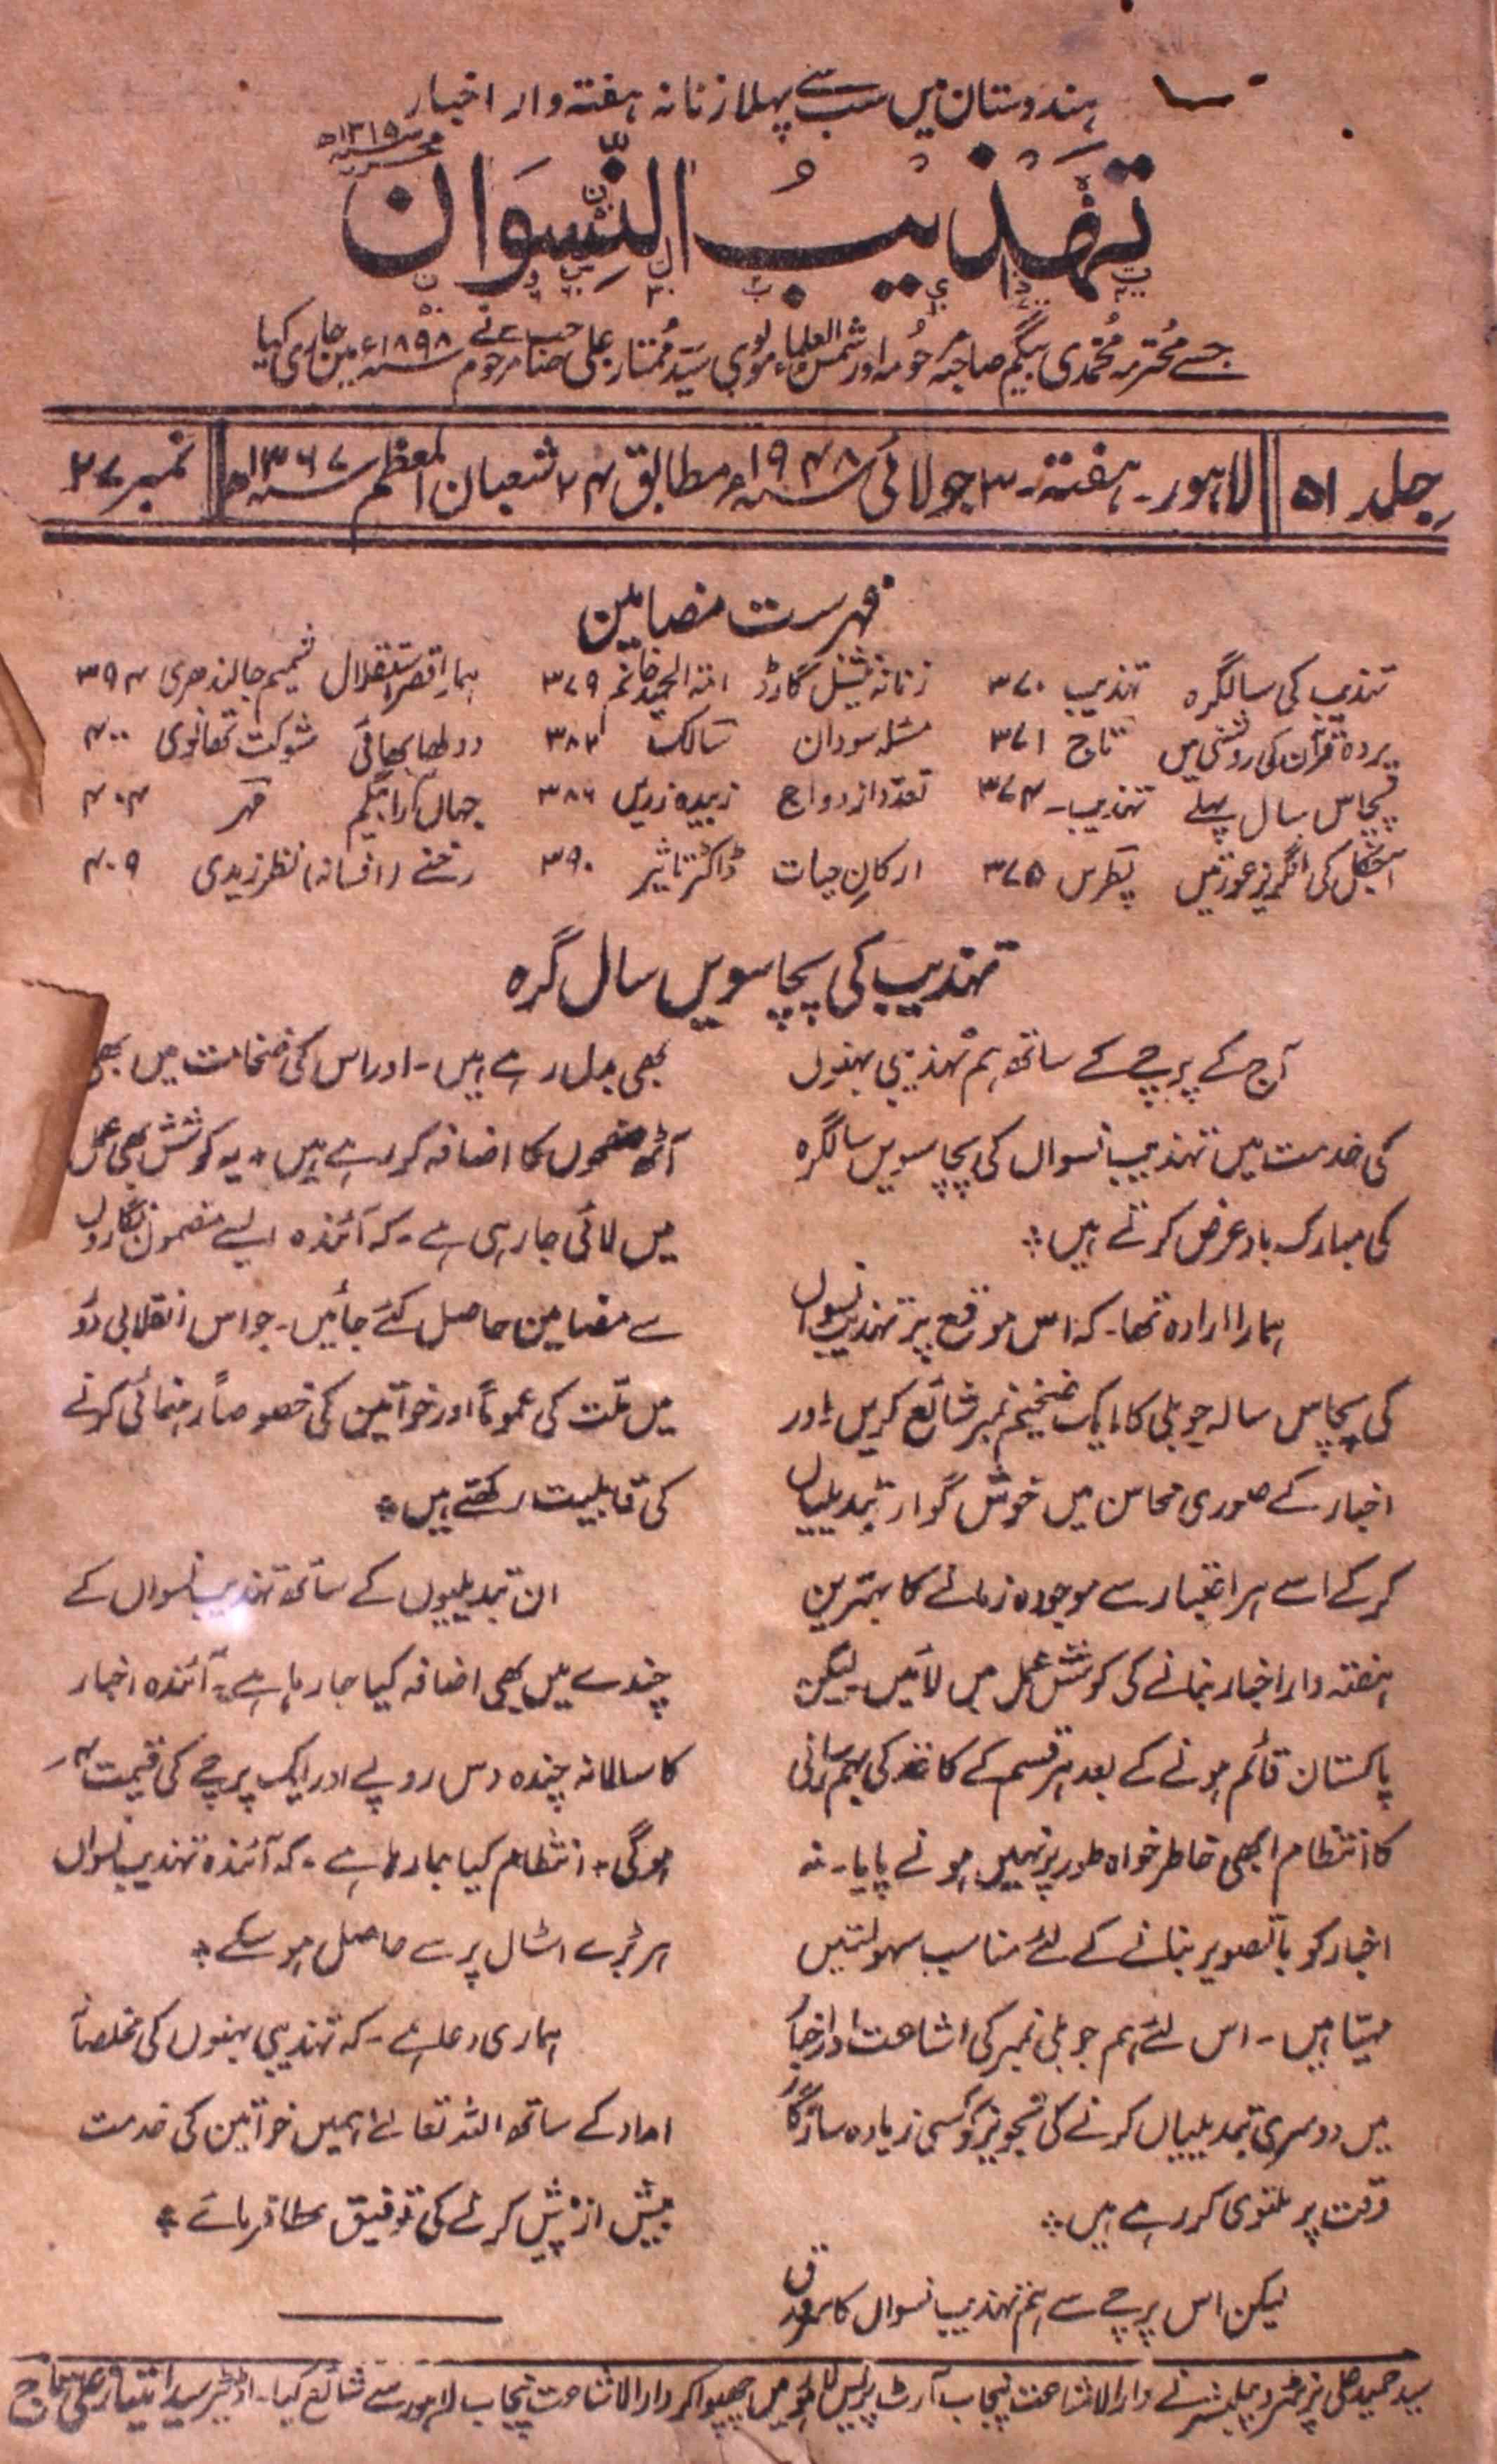 ہندوستان میں سب سے پہلا زنانہ ہفتہ وار اخبار
محرم سنہ ۱۳۱۵ھ
تہذیبُ النِّسوَان
جسے محترمہ محمدی بیگم صاحبہ مرحومہ اور شمس العلماء مولوی سید ممتاز علی صاحب مرحوم نے سنہ ۱۸۹۸ء میں جاری کیا
جلد ۵۱
لاہور۔ ہفتہ۔ ۳ جولائی سنہ ۱۹۴۸ء مطابق ۲۴ شعبان المعظم سنہ ۱۳۶۷ھ
نمبر ۲۷
فہرست مضامین
تہذیب کی سالگرہ تہذیب ۳۷۰
پردہ قرآن کی روشنی میں تاج ۳۷۱
پچاس سال پہلے تہذیب۔ ۳۷۴
آجکل کی انگریز عورتیں پطرس ۳۷۵
زنانہ نیشنل گارڈ امۃ الحمید خانم ۳۷۹
مسئلہ سودان سالک ۳۸۲
تعدد ازدواج زبیدہ زریں ۳۸۶
ارکانِ حیات ڈاکٹر تاثیر ۳۹۰
ہمارا قصر استقلال شمیم جالندھری ۳۹۴
دولھا بھائی شوکت تھانوی ۴۰۰
جہاں آرا بیگم مہر ۴۰۴
رخنے (افسانہ) نظر زیدی ۴۰۹
تہذیب کی پچاسویں سال گرہ
آج کے پرچے کے ساتھ ہم تہذیبی بہنوں
کی خدمت میں تہذیب نسواں کی پچاسویں سالگرہ
کی مبارک باد عرض کرتے ہیں ؞
ہمارا ارادہ تھا۔ کہ اس موقع پر تہذیب نسواں
کی پچاس سالہ جوبلی کا ایک ضخیم نمبر شائع کریں اور
اخبار کے صوری محاسن میں خوش گوار تبدیلیاں
کر کے اسے ہر اعتبار سے موجودہ زمانے کا بہترین
ہفتہ وار اخبار بنانے کی کوشش عمل میں لائیں۔ لیکن
پاکستان قائم ہونے کے بعد ہر قسم کے کاغذ کی بہم رسانی
کا انتظام ابھی خاطر خواہ طور پر نہیں ہونے پایا۔ نہ
اخبار کو باتصویر بنانے کے لئے مناسب سہولتیں
مہیّا ہیں۔ اس لئے ہم جوبلی نمبر کی اشاعت اور اخبار
میں دوسری تبدیلیاں کرنے کی تجویز کو کسی زیادہ سازگار
وقت پر ملتوی کر رہے ہیں ؞
لیکن اس پرچے سے ہم تہذیب نسواں کا سرورق
بھی بدل رہے ہیں۔ اور اس کی ضخامت میں بھی
آٹھ صفحوں کا اضافہ کر رہے ہیں ۔ یہ کوشش بھی عمل
میں لائی جا رہی ہے۔ کہ آئندہ ایسے مضمون نگاروں
سے مضامین حاصل کئے جائیں۔ جو اس انقلابی دَور
میں ملّت کی عموماً اور خواتین کی خصوصاً رہنمائی کرنے
کی قابلیت رکھتے ہیں ؞
ان تبدیلیوں کے ساتھ تہذیب نسواں کے
چندے میں بھی اضافہ کیا جا رہا ہے۔ آئندہ اخبار
کا سالانہ چندہ دس روپے اور ایک پرچے کی قیمت ۴ر
ہو گی۔ انتظام کیا جا رہا ہے۔ کہ آئندہ تہذیب نسواں
ہر بڑے اسٹال پر سے حاصل ہو سکے ؞
ہماری دعا ہے۔ کہ تہذیبی بہنوں کی مخلصانہ
امداد کے ساتھ اللہ تعالےٰ ہمیں خواتین کی خدمت
بیش از پیش کرنے کی توفیق عطا فرمائے ؞
سید حمید علی پرنٹر و پبلشر نے دارالاشاعت پنجاب آرٹ پریس لاہور میں چھپوا کر دارالاشاعت پنجاب لاہور سے شائع کیا۔ اڈیٹر سید امتیاز علی تاج